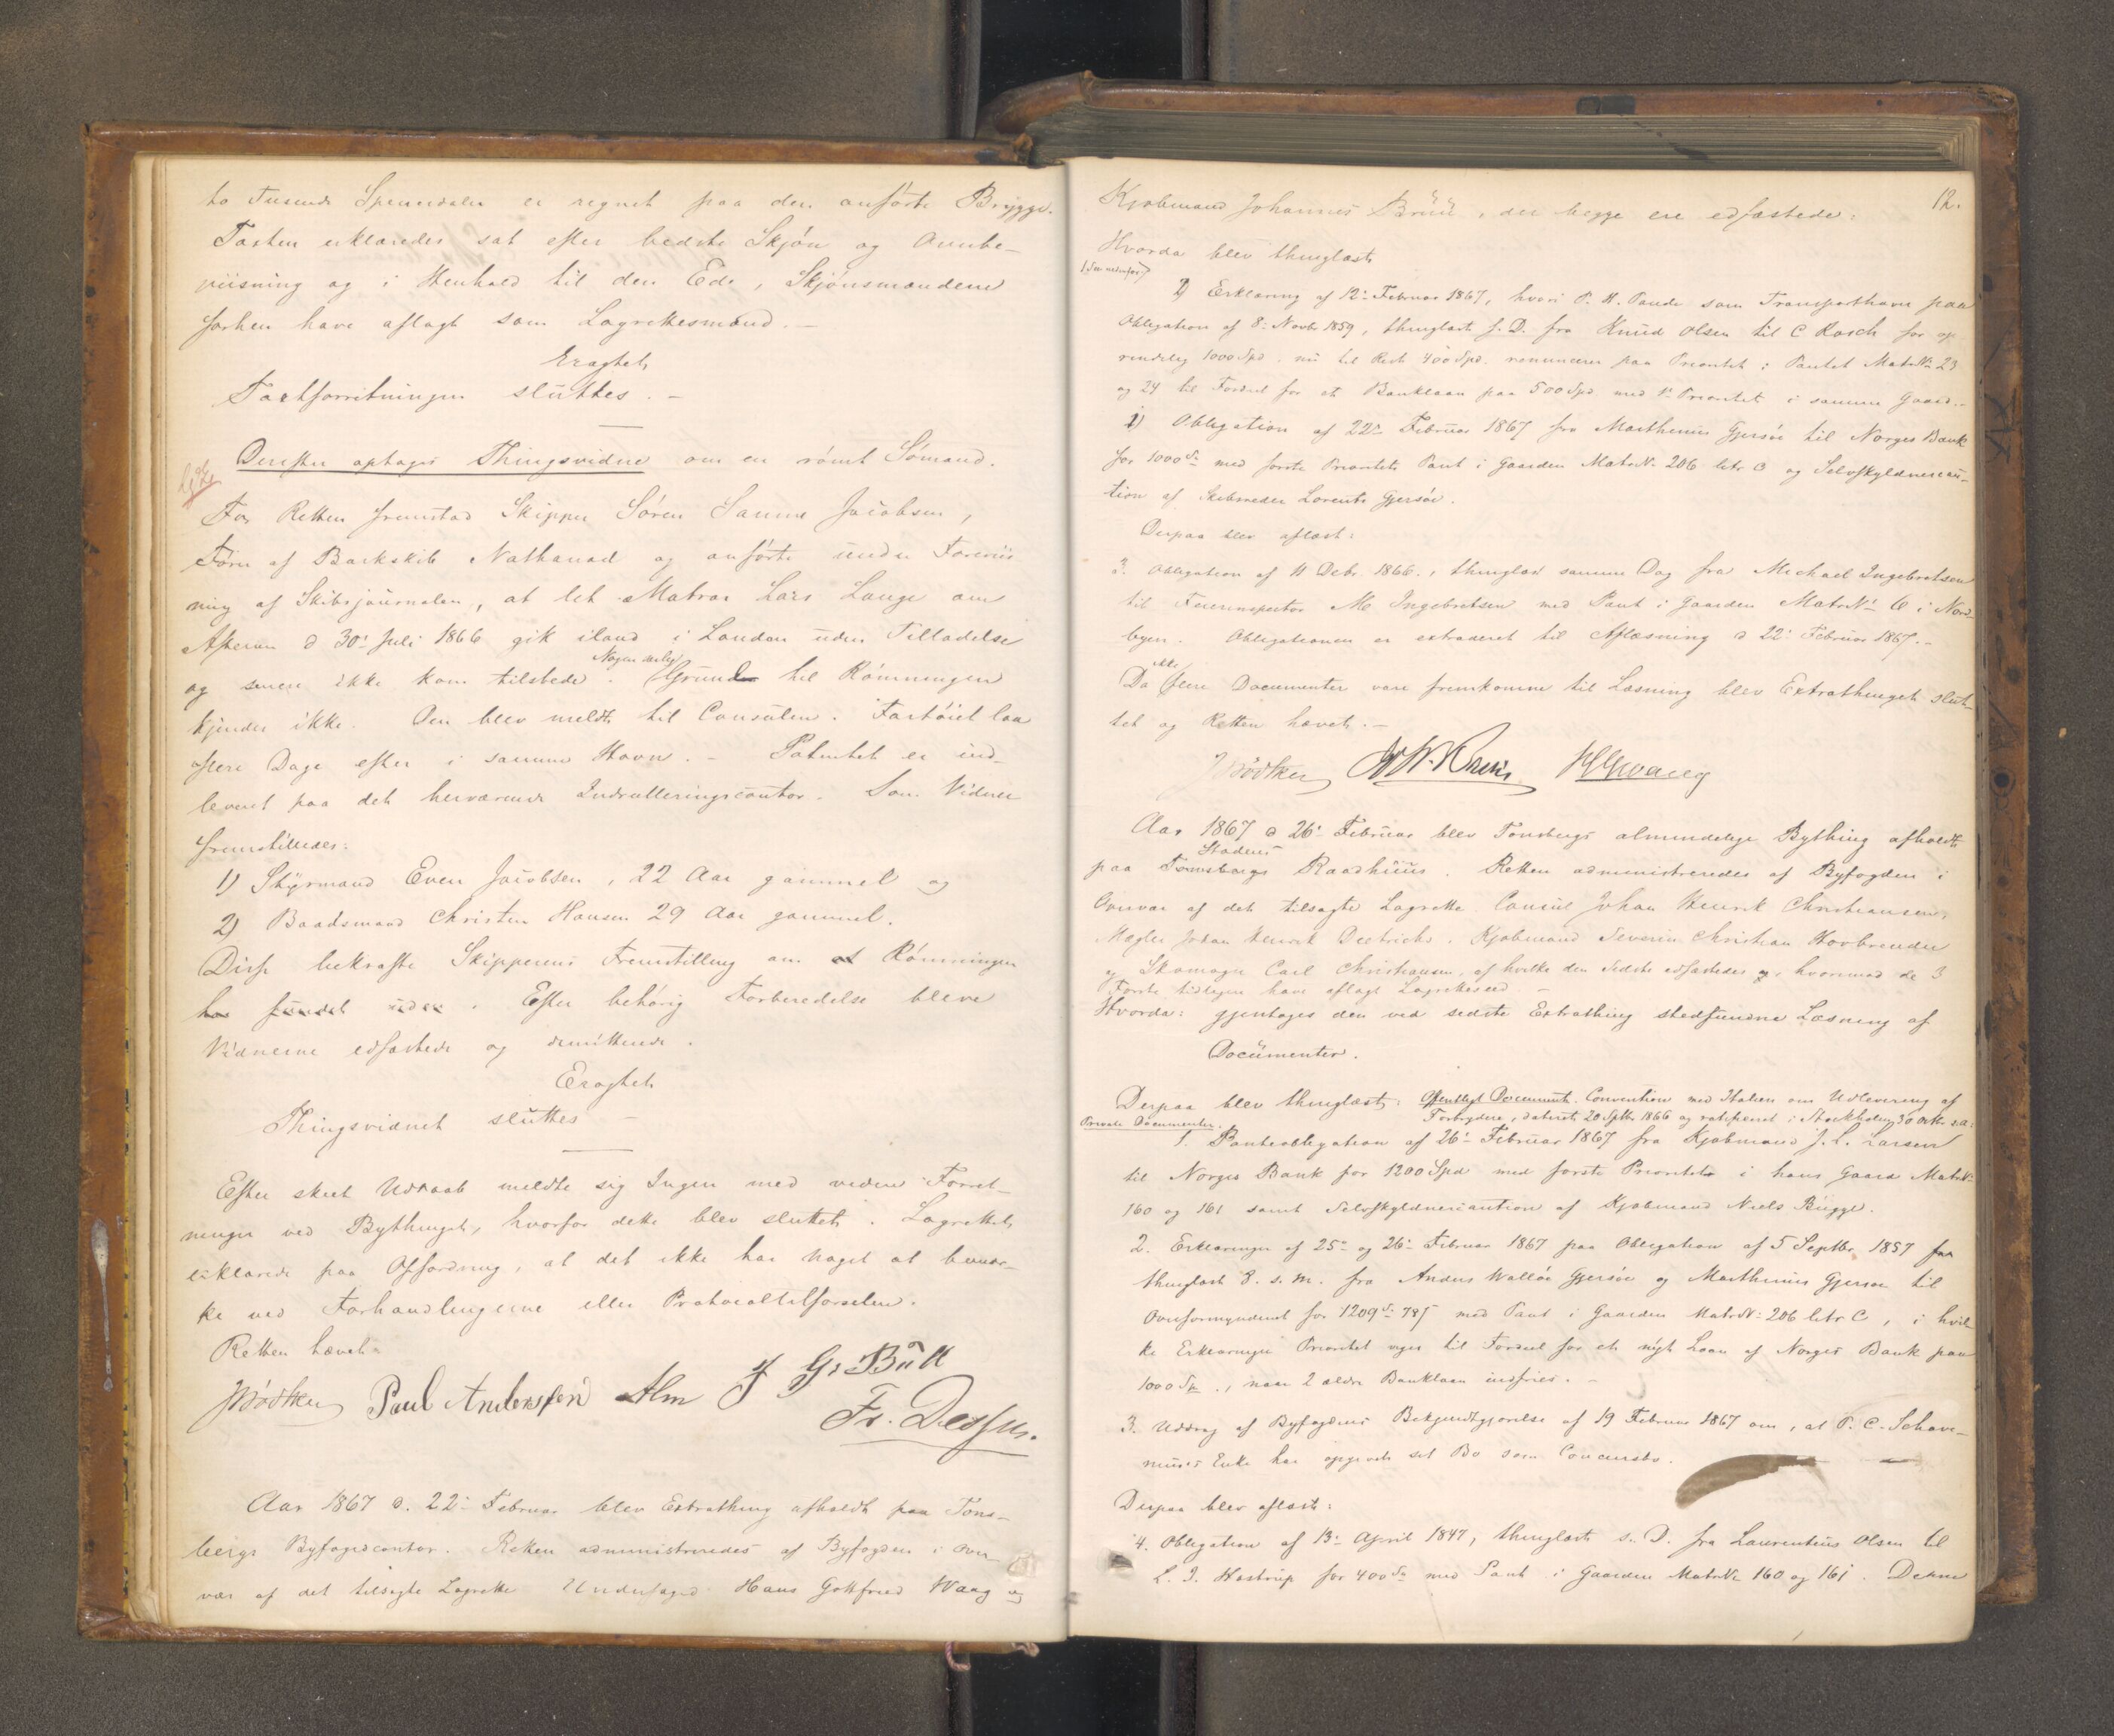 to Tusende Speciedaler er regnet paa den anførte Brygge.
Taxten erklæredes sat efter bedste Skjøn og Overbe-
viisning og i Henhold til den Ed, Skjønsmændene
forhen have aflagt som Lagrettesmænd.-
Eragtet,
Taxtforretningen sluttes.-
Derefter optages Thingsvidne om en rømt Sømand.
For Retten fremstod Skipper Søren Sanne Jacobsen,
Fører af Barkskib Nathanael og anførte under Foreviis
ning af Skibsjournalen, at let Matros Lars Lange om
Aftenen d 30' Juli 1866 gik iland i London uden Tilladelse
og senere ikke kom tilstede. Nogen Grund til Rømningen
kjendes ikke. Den blev meldt til Consulen. Fartøiet laa
flere Dage efter i samme Havn.- Patentet er ind-
leveret paa det herværende Indrulleringscontor. Som Vidner
fremstilledes:
1) Styrmand Even Jacobsen, 22 Aar gammel og
2) Baadsmand Christen Hansen 29 Aar gammel.
Disse bekræfte Skipperens Fremstilling om at Rømningen
har fundet sted. Efter behørig Forberedelse bleve
Vidnerne edfæstede og demitterede.
Eragtet
Thingsvidnet sluttes -
Efter skeet Udraab meldte sig Ingen med videre Forret-
ninger ved Bythinget, hvorfor dette blev sluttet. Lagrettet
erklærede paa Opfordring, at det ikke har noget at bemær-
ke ved Forhandlingerne eller Protocoltilførselen.
Retten hævet
Bødtker Paul Anderssen Alm J G. Bull
Fr.
Aar 1867 d. 22' Februar blev Extrathing afholdt paa Tøns-
bergs Byfogedcontor. Retten administreredes af Byfogden i Over-
vær af det tilsagte Lagrette Underfoged Hans Gottfried Waag og
12.
Kjøbmand Johannes Bruu, der begge ere edfæstede:
Hvorda blev thinglæst
(See nedenfor)
2) Erklæring af 12' Februar 1867, hvori P. H. Pande som Transporthaver paa
Obligation af 8' Novbr 1859, thinglæst s. D. fra Knud Olsen til C Rosch for op
rindelig 1000 Spd. nu til Rest 400 Spd. renuncerer paa Prioritet i Pantet MatrNo 23
og 24 til Fordeel for et Banklaan paa 500 Spd med 1' Prioritet i samme Gaard.-
1) Obligation af 22' Februar 1867 fra Marthinus Gjersøe til Norges Bank
for 1000 Sp. med første Prioritets Pant i Gaarden MatrNo 206 litr C og Selvskyldnercau-
tion af Skibsreder Lorents Gjersøe.
Derpaa blev aflæst:
3. Obligation af 11 Decbr. 1866., thinglæst samme Dag fra Michael Ingebretsen
til Feierinspector M Ingebretsen med Pant i Gaarden MatrNo 6 i Nord-
byen. Obligationen er extraderet til Aflæsning d 22' Februar 1867.-
Da ikke flere Documenter vare fremkomne til Læsning blev Extrathinget slut-
tet og Retten hævet.-
Bødtker HGWaag
Aar 1867 d 26' Februar blev Tønsbergs almindelige Bything afholdt
paa Stadens Tønsbergs Raadhuus. Retten administreredes af Byfogden i
Overvær af det tilsagte Lagrette Consul Johan Henrik Christiansen,
Mægler Johan Henrik Dietrichs, Kjøbmand Severin Christian Hovbrender
og Skomager Carl Christiansen, af hvilke den Sidste edfæstedes og, hvorimod de 3
Første tidligere have aflagt Lagretteseed. -
Hvorda: gjentages den ved sidste Extrathing stedfundne Læsning af
Documenter.
Derpaa blev thinglæst: Offentligt Document. Convention med Italien om Udlevering af
Forbrydere, dateret 20 Septbr 1866 og ratificeret i Stockholm 30 Octbr s.A:
Private Documenter.
1. Panteobligation af 26' Februar 1867 fra Kjøbmand J. L. Larsen
til Norges Bank for 1200 Spd med første Prioritet i hans Gaard MatrNo
160 og 161 samt Selvskyldnercaution af Kjøbmand Niels Bugge.
2. Erklæringer af 25' og 26' Februar 1867 paa Obligation af 5 Septbr. 1857 fra
thinglæst 8. s. M. fra Anders Walløe Gjersøe og Marthinus Gjersøe til
Overformynderiet for 1209 Sp. 78 f med Pant i Gaarden MatrNo: 206 litr C, i hvil-
ke Erklæringer Prioritet viges til Fordeel for et nyt Laan af Norges Bank paa
1000 Sp., naar 2 ældre Banklaan indfries. -
3. Uddrag af Byfogdens Bekjendtgjørelse af 19 Februar 1867 om, at P. C. Schave-
nuses Enke har opgivet sit Bo som Concursbo.
Derpaa blev aflæst:
4. Obligation af 13' April 1847, thinglæst s. D. fra Laurentius Olsen til
L. I. Hastrup for 400 Sp. med Pant i Gaarden MatrNo 160 og 161. Denne